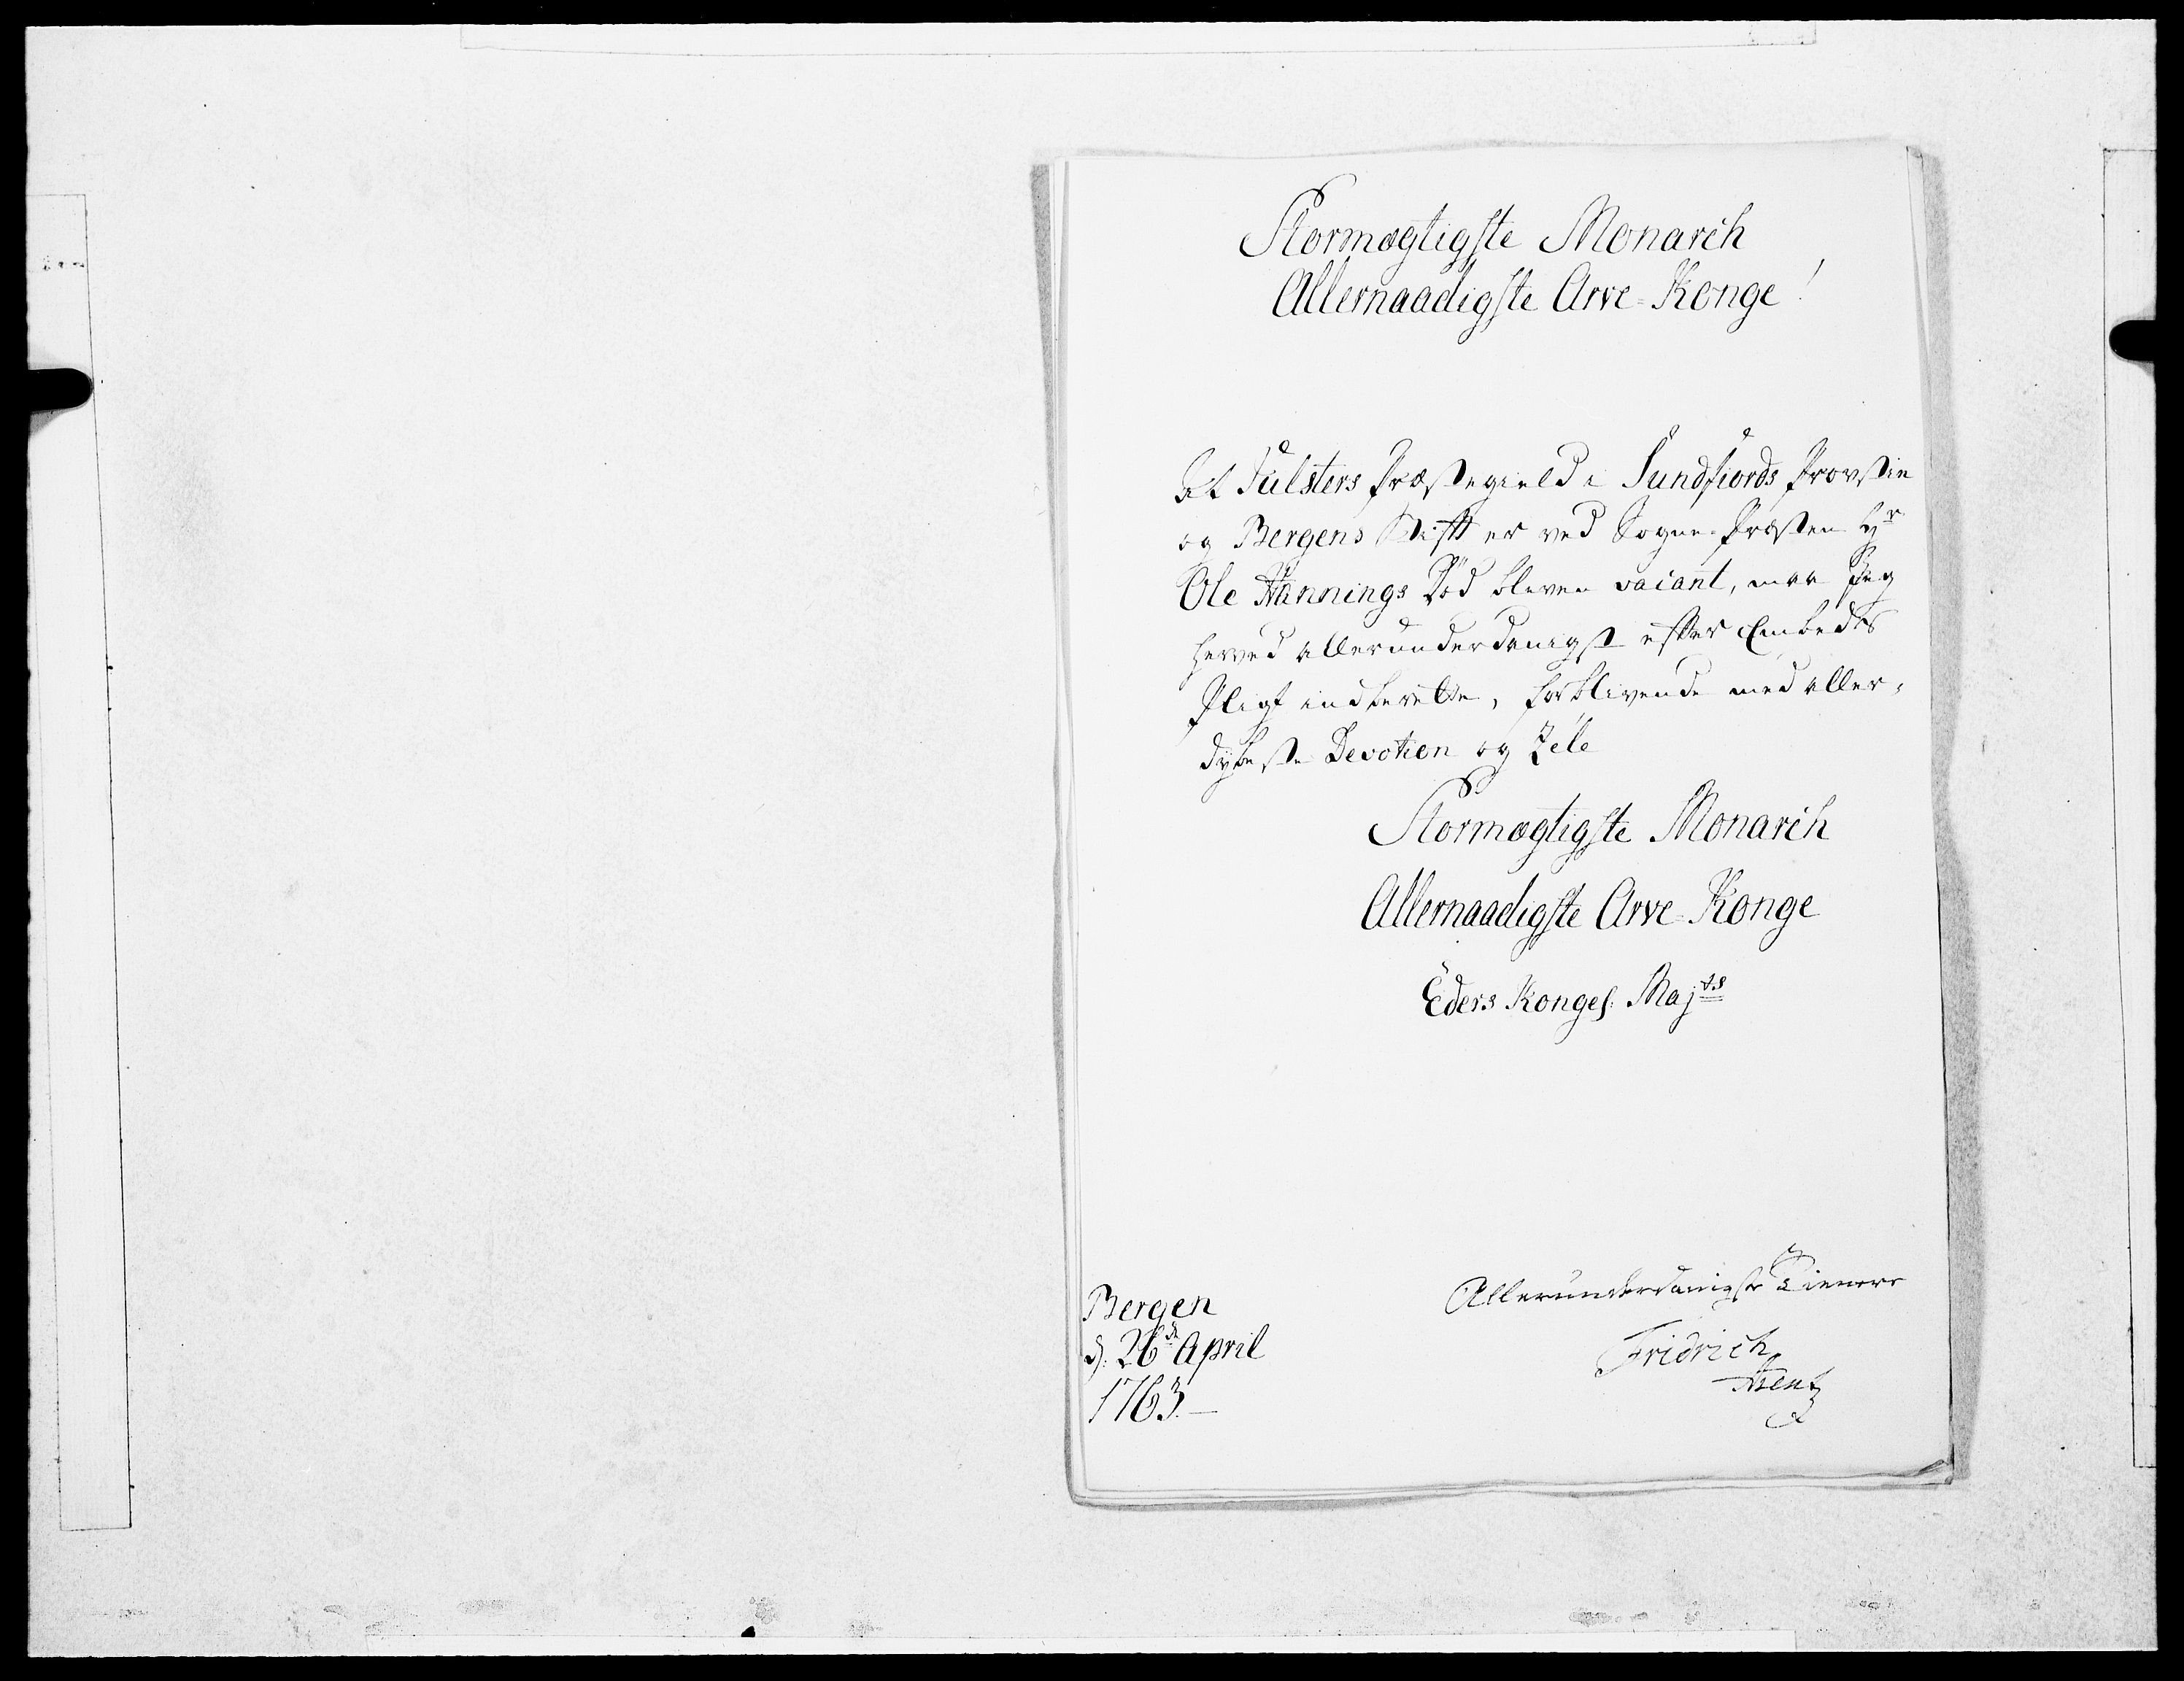 Stormægtigste Monarch
Allernaadigste Arve-Konge!
At Julsters Præstegield i Sundfiords Provstie
og Bergens Stift er ved Sogne-Præsten Hr
Ole Hannings Død bleven vacant, maa Jeg
herved allerunderdanigst efter Embeds
Pligt indberette, forblivende med aller-
dybeste Devotion og Zéle
Stormægtigste Monarch
Allernaadigste Arve-Konge
Eders Kongel: Majts
Allerunderdanigste Tienere
Bergen
d: 26de April
1763.
Fridrich
Arentz